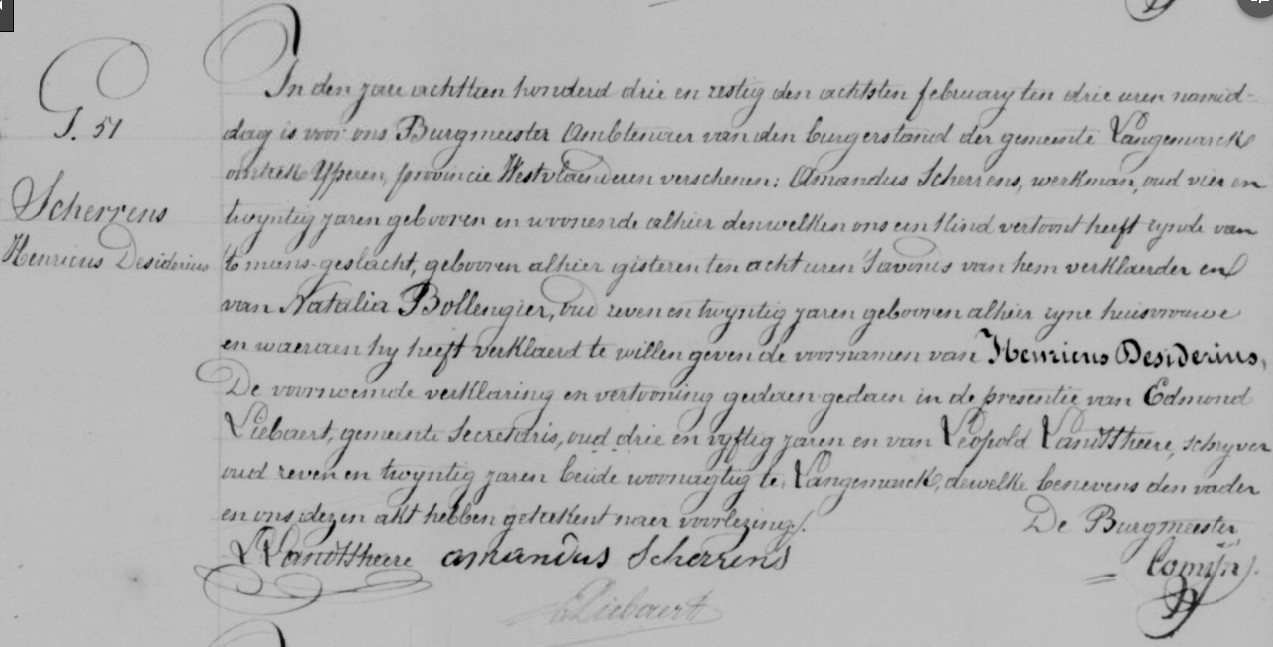 G. 51
Scherrens
Henricus Desiderius
In den jare achttien honderd drie en zestig den achtsten february ten drie uren namid-
dag is voor ons Burgmeester Ambtenaer van den burgerstand der gemeente Langemarck
omtrek Yperen, provincie Westvlaenderen verschenen: Amandus Scherrens, werkman, oud vier en
twyntig jaren gebooren en woonende alhier denwelken ons een kind vertoont heeft zynde van
't mans geslacht, gebooren alhier gisteren ten acht uren 's avonds van hem verklaerder en
van Natalia Bollengier, oud zeven en twyntig jaren gebooren alhier zyne huisvrouwe
en waeraen hy heeft verklaerd te willen geven de voornamen van Henricus Desiderius,
De voornoemde verklaring en vertooning gedaen in de presentie van Edmond
Liebaert, gemeente Secretaris, oud drie en vyftig jaren en van Leopold Landtsheere, schryver
oud zeven en twyntig jaren beide woonagtig te Langemarck, dewelke benevens den vader
en ons dezen akt hebben geteekent naer voorlezing /.
De Burgmeester
L Landtsheere amandus Scherrens
Comÿn
Liebaert